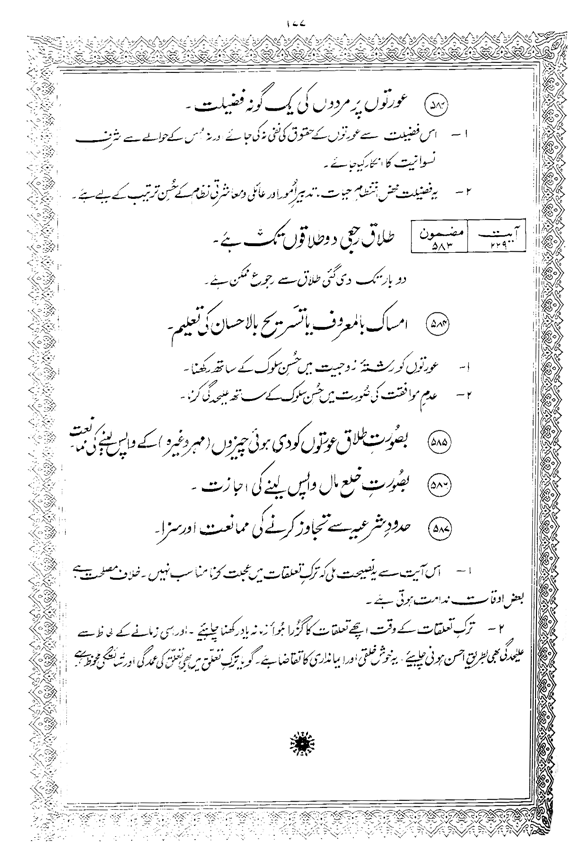 ۱۷۷
۵۸۲ عورتوں پر مردوں کی یک گونہ فضیلت ۔
۱ - اس فضیلت سے عورتوں کے حقوق کی نفی نہ کی جائے اور نہ اس کے حوالے سے شرف
نسوانیت کا انکار کیا جائے ۔
۲ - یہ فضیلت محض انتظامِ حیات، تدبیرِ اُمور اور عائلی و معاشرتی نظام کے حُسنِ ترتیب کے لیے ہے ۔
آیت ۲۲۹ مضمون ۵۸۳ طلاق رجعی دو طلاقوں تک ہے ۔
دو بار تک دی گئی طلاق سے رجوع ممکن ہے ۔
۵۸۴ امساک بالمعروف یا تسریح بالاحسان کی تعلیم ۔
۱ - عورتوں کو رشتۂ زوجیت میں حُسنِ سلوک کے ساتھ رکھنا ۔
۲ - عدمِ موافقت کی صُورت میں حُسنِ سلوک کے ساتھ علیحدگی کرنا ۔
۵۸۵ بصُورتِ طلاق عورتوں کو دی ہوئی چیزوں (مہر وغیرہ) کے واپس لینے کی ممانعت
۵۸۶ بصُورتِ خلع مال واپس لینے کی اجازت ۔
۵۸۷ حدودِ شرعیہ سے تجاوز کرنے کی ممانعت اور سزا ۔
۱ - اس آیت سے یہ نصیحت ملی کہ ترکِ تعلقات میں عجلت کرنا مناسب نہیں ۔ خلافِ مصلحت ہے
بعض اوقات ندامت ہوتی ہے ۔
۲ - ترکِ تعلقات کے وقت اچھے تعلقات کا گزرا ہُوا زمانہ یاد رکھنا چاہیئے ۔ اور اسی زمانے کے لحاظ سے
علیحدگی بھی بطریقِ احسن ہونی چاہیئے ۔ یہ خوش خلقی اور ایمانداری کا تقاضا ہے ۔ گویا ترکِ تعلق میں بھی تعلق کی عمدگی اور شائستگی ملحوظ رہے